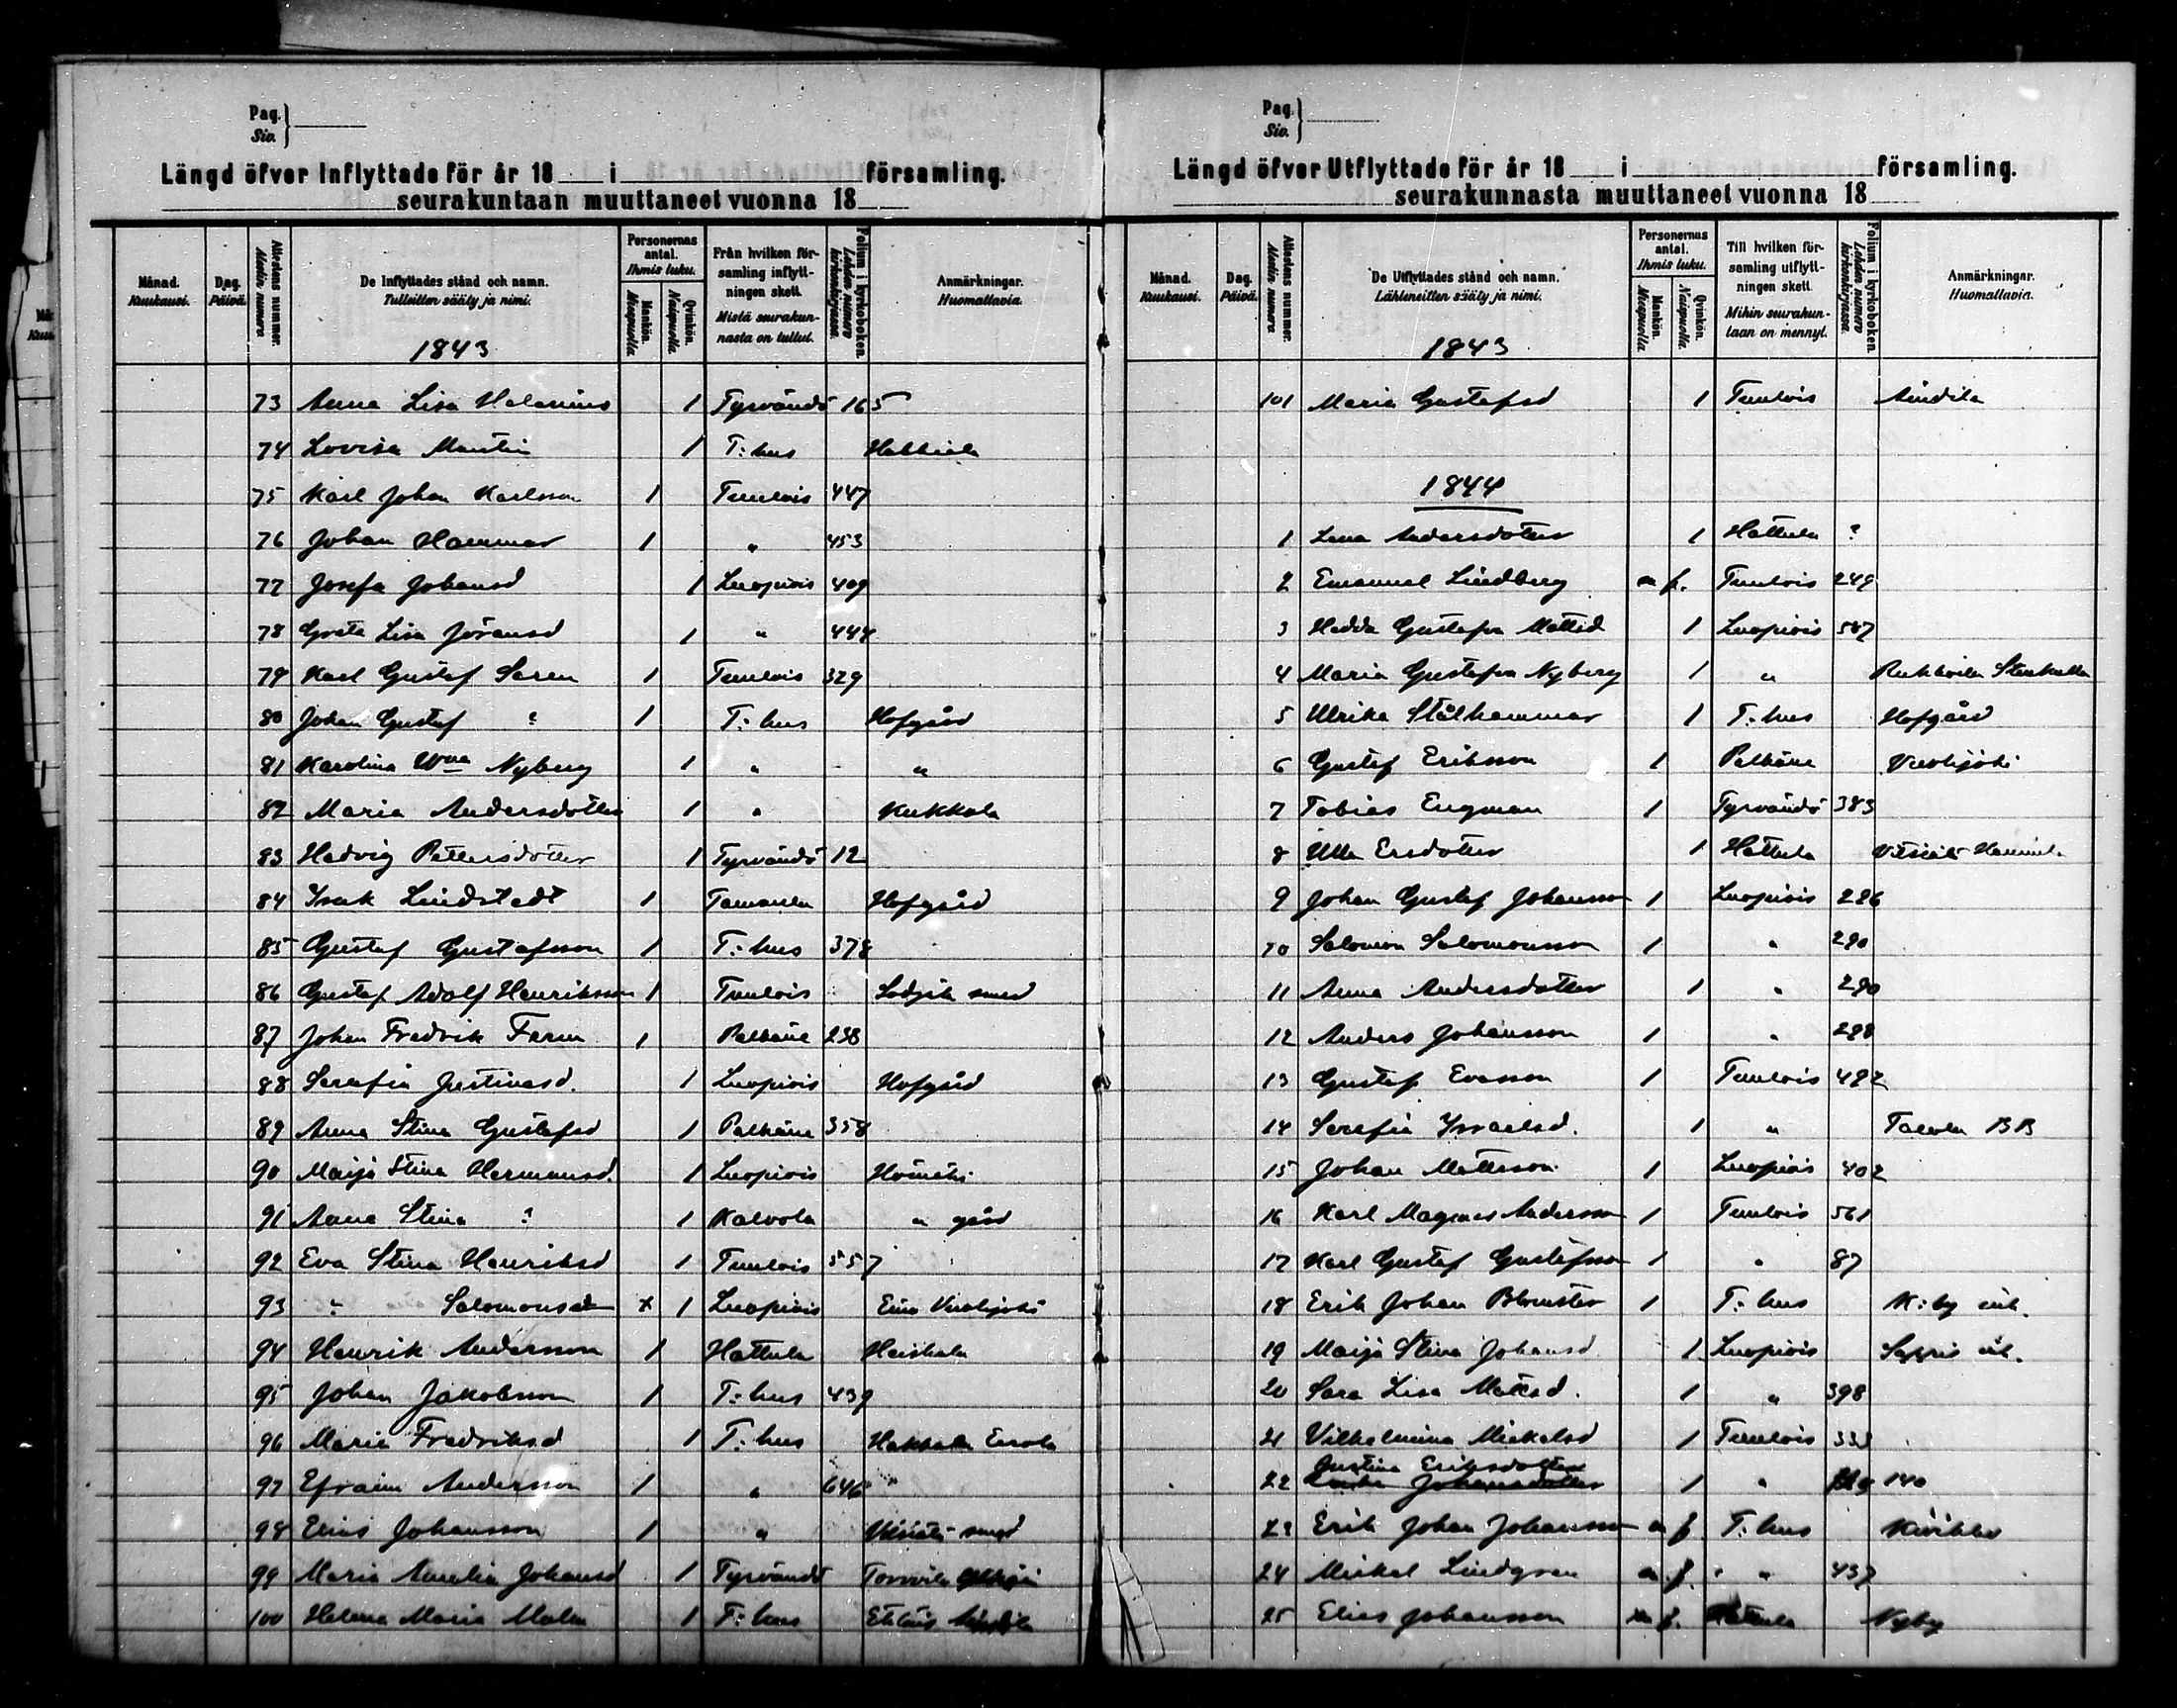 Pag.
Siv.
Längd öfver Inflyttade för år 18 i församling.
seurakuntaan muuttaneet vuonna 18
Månad. Kuukausi.
Dag. Päivä.
Attestens nummer. Alestin numero
De Inflyttades stånd och namn. Tulleitten sääty ja nimi.
Personernas antal. Ihmis luku.
Mankön. Miespuolia
Qvinkön. Naispuolia
Från hvilken församling inflyttningen skett. Mistä seurakunnasta on tullut.
Folium i kyrkoboken. Lehden numero kirkonkirjassa.
Anmärkningar. Huomattavia.
1843
73 Anna Lisa Helenius 1 Tyrvändö 165
74 Lovisa Mantin 1 T:hus
75 Karl Johan Karlsson 1 Tuulois 447
76 Johan Hammar 1 " 453
77 Josefa Johansd 1 Luopiois 409
78 Greta Lisa Jöransd 1 " 444
79 Karl Gustaf Saren 1 Tuulois 329
80 Johan Gustaf ? 1 T:hus Hofgård
81 Karolina Wma Nyberg 1 " "
82 Maria Andersdotter 1 " Kukkola
83 Hedvig Pettersdotter 1 Tyrvändö 12
84 Isak Lindstedt 1 Hofgård
85 Gustaf Gustafsson 1 T:hus 378
86 Gustaf Adolf Henriksson 1 Tuulois
87 Johan Fredrik Ferm 1 Pelkäne 238
88 Serafia Justinasd. 1 Luopiois Hofgård
89 Anna Stina Gustafsd 1 Pelkäne 358
90 Maija Stina Hermansd. 1 Luopiois
91 Anna Stina ? 1 Kalvola " gård
92 Eva Stina Henriksd 1 Tuulois 557
93 " Salomonsd x 1 Luopiois Eino Vuolijoki
94 Henrik Andersson 1 Hattula Heiskala
95 Johan Jakobsson 1 T:hus 439
96 Maria Fredriksd 1 T:hus Hakkala Eerola
97 Efraim Andersson 1 " 646
98 Elias Johansson 1 "
99 Maria Amalia Johansd 1 Tyrvändö
100 Helena Maria Malm 1 T:hus
Pag.
Siv.
Längd öfver Utflyttade för år 18 i församling.
seurakunnasta muuttaneet vuonna 18
Månad. Kuukausi.
Dag. Päivä.
Attestens nummer. Alestin numero
De Utflyttades stånd och namn. Lähteneitten sääty ja nimi.
Personernas antal. Ihmis luku.
Mankön. Miespuolia
Qvinkön. Naispuolia
Till hvilken församling utflyttningen skett. Mihin seurakuntaan on mennyt.
Folium i kyrkoboken. Lehden numero kirkonkirjassa.
Anmärkningar. Huomattavia.
1843
101 Maria Gustafsd 1 Tuulois
1844
1 Lena Andersdotter 1 Hattula ?
2 Emanuel Lindberg m f. Tuulois 249
3 Hedda Gustafva Mattsd 1 Luopiois 587
4 Maria Gustafva Nyberg 1 "
5 Ulrika Stålhammar 1 T:hus Hofgård
6 Gustaf Eriksson 1 Pelkäne Vuolijoki
7 Tobias Engman 1 Tyrvändö 383
8 Ulla Ersdotter 1 Hattula
9 Johan Gustaf Johansson 1 Luopiois 286
10 Salomon Salomonsson 1 " 290
11 Anna Andersdotter 1 " 290
12 Anders Johansson 1 " 298
13 Gustaf Evasson 1 Tuulois 492
14 Serafia Israelsd. 1 "
15 Johan Mattsson 1 Luopiois 402
16 Karl Magnus Andersson 1 Tuulois 561
17 Karl Gustaf Gustafsson 1 " 87
18 Erik Johan Blomster 1 T:hus K:by
19 Maija Stina Johansd 1 Luopiois
20 Sara Lisa Mattsd. 1 " 398
21 Vilhelmina Mickelsd 1 Tuulois 333
Justina Eriksdotter
22 Johansdotter 1 " 140
23 Erik Johan Johansson m f T:hus
24 Mickel Lindgren m f. " " 437
25 Elias Johansson m f. Hattula Nyby